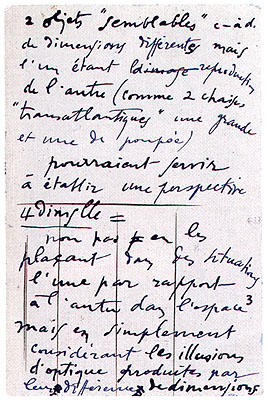 2 objets "semblables" c-à d.
de dimensions différentes mais
l'un étant l'image reproduction
de l'autre (comme 2 chaises
"transatlantiques" une grande
et une de poupée)
pourraient servir
à établir une perspective
4 dimlle =
non pas en les
plaçant dans des situations
l'une par rapport
à l'autre dans l'espace 3
mais en simplement
considérant les illusions
d'optique produites par
leur différence de dimensions